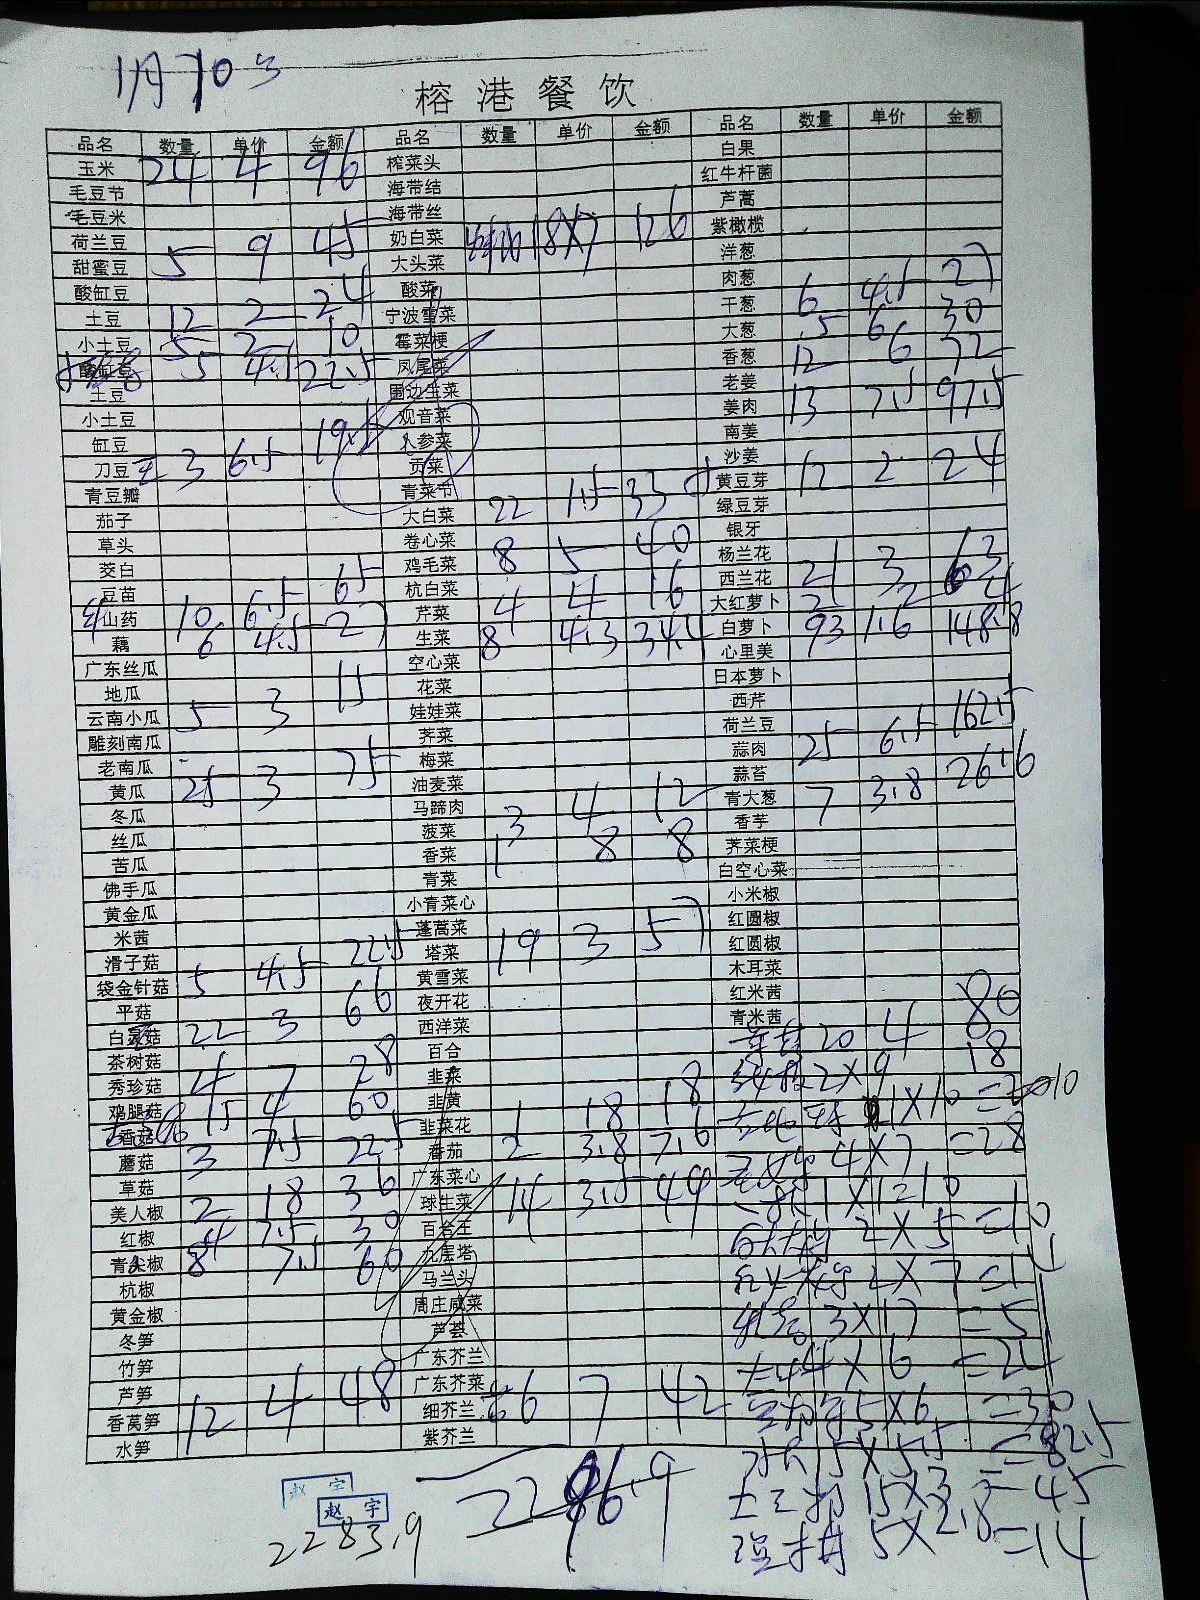 1月10号
榕港餐饮
品名 数量 单价 金额 品名 数量 单价 金额 品名 数量 单价 金额
玉米 24 4 96 榨菜头 白果
毛豆节 海带结 红牛杆菌
毛豆米 海带丝 芦蒿
荷兰豆 奶白菜 18X7 126 紫橄榄
甜蜜豆 5 9 45 大头菜 洋葱
酸缸豆 酸菜 肉葱
土豆 12 2 24 宁波雪菜 干葱 6 4.5 27
小土豆 5 2 10 霉菜梗 大葱 5 6 30
酸缸豆 5 4.5 22.5 凤尾菜 香葱 12 6 72
土豆 围边生菜 老姜
小土豆 观音菜 姜肉 13 7.5 97.5
缸豆 人参菜 南姜
刀豆 3 6.5 19.5 贡菜 沙姜
青豆瓣 青菜节 黄豆芽 12 2 24
茄子 大白菜 22 1.5 33 绿豆芽
草头 卷心菜 银牙
茭白 鸡毛菜 8 5 40 杨兰花
豆苗 杭白菜 西兰花 21 3 63
山药 10 6.5 65 芹菜 4 4 16 大红萝卜 2 2 4
藕 6 4.5 27 生菜 8 4.3 34.4 白萝卜 93 1.6 148.8
广东丝瓜 空心菜 心里美
地瓜 花菜 日本萝卜
云南小瓜 5 3 15 娃娃菜 西芹
雕刻南瓜 荠菜 荷兰豆
老南瓜 梅菜 蒜肉 25 6.5 162.5
黄瓜 25 3 75 油麦菜 蒜苔
冬瓜 马蹄肉 青大葱 7 3.8 26.6
丝瓜 菠菜 3 4 12 香芋
苦瓜 香菜 1 8 8 荠菜梗
佛手瓜 青菜 白空心菜
黄金瓜 小青菜心 小米椒
米茜 蓬蒿菜 红圆椒
滑子菇 塔菜 19 3 57 红圆椒
袋金针菇 5 4.5 22.5 黄雪菜 木耳菜
平菇 夜开花 红米茜
白灵菇 22 3 66 西洋菜 青米茜
茶树菇 百合 20 4 80
秀珍菇 4 7 28 韭菜 2X9 18
鸡腿菇 15 4 60 韭黄 1X10 =10
香菇 韭菜花 1 18 18
蘑菇 3 7.5 22.5 番茄 2 3.8 7.6 4X7 =28
草菇 广东菜心
美人椒 2 18 36 球生菜 14 3.5 49 2X5 =10
红椒 4 7.5 30 百合王
青尖椒 8 7.5 60 九层塔 2X7 =14
杭椒 马兰头
黄金椒 周庄咸菜 3X17 =51
冬笋 芦荟
竹笋 广东芥兰 4X6 =24
芦笋 广东芥菜
香莴笋 12 4 48 细芥兰 6 7 42 5X6 =30
水笋 紫芥兰
15X5.5 =82.5
15X3 =45
5X2.8 =14
赵宇
赵宇
2283.9